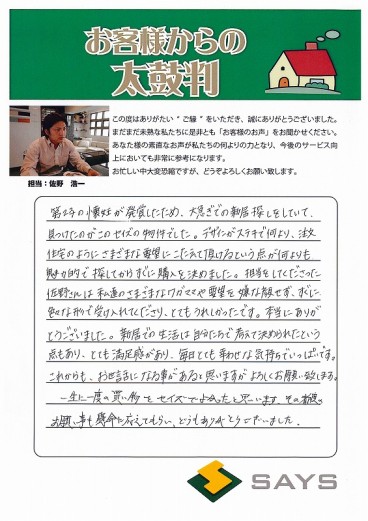 お客様からの
太鼓判
この度はありがたい “ ご縁 ” をいただき、誠にありがとうございました。
まだまだ未熟な私たちに是非とも「お客様のお声」をお聞かせください。
あなた様の素直なお声が私たちの何よりの力となり、今後のサービス向
上においても非常に参考になります。
お忙しい中大変恐縮ですが、どうぞよろしくお願い致します。
担当：佐野 浩一
第2子の懐妊が発覚したため、大急ぎでの新居探しをしていて、
見つけたのがこのセイズの物件でした。デザインがステキで何より、注文
住宅のようにさまざまな要望にこたえて頂けるという点が何よりも
魅力的で探してからすぐに購入を決めました。担当をしてくださった
佐野さんは私達のさまざまなワガママや要望を嫌な顔せず、すぐに
色々な形で受け入れてくださり、とてもうれしかったです。本当にありが
とうございました。新居での生活は自分たちで考えて決められたという
点もあり、とても満足感があり、毎日とても幸わせな気持ちでいっぱいです。
これからも、お世話になる事があると思いますがよろしくお願い致します。
一生に一度の買い物をセイズでよかったと思います。その節は
お願い事も懸命に応えてもらい、どうもありがとうございました。
SAYS